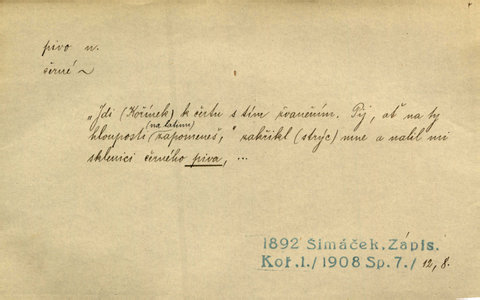 pivo n.
černé ~
„Jdi (Kořínek) k čertu s tím žvaněním. Pij, ať na ty
(na latinu)
hlouposti zapomeneš,“ zakřikl (strýc) mne a nalil mi
sklenici černého piva, ...
1892 Simáček, Zápis.
Koř. 1./1908 Sp. 7./ 12, 8.